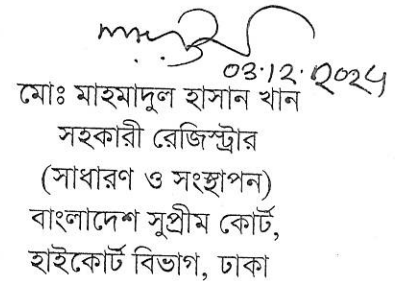 03.12.2024
মোঃ মাহমাদুল হাসান খান
সহকারী রেজিস্ট্রার
(সাধারণ ও সংস্থাপন)
বাংলাদেশ সুপ্রীম কোর্ট,
হাইকোর্ট বিভাগ, ঢাকা